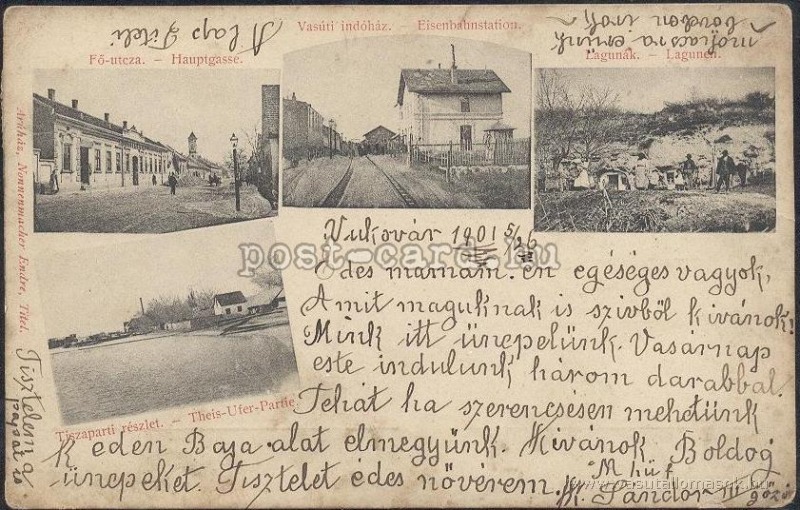 A lap Titeli
Vasúti indóház. – Eisenbahnstation.
mohácsra
Fő-utcza. – Hauptgasse.
Lagunák. – Lagunen.
Áruház, Nonnenmacher Endre, Titel.
Vukovár 1901 5/26
post-card.hu
Édes mamám. én egéséges vagyok,
Amit maguknak is szivből kivánok.
Mink itt ünepelünk. Vasárnap
este indulunk három darabbal.
Tehát ha szerencsésen mehetünk
Tiszaparti részlet. – Theis-Ufer-Partie.
keden Baja alat elmegyünk. Kivánok Boldog
ünepeket. Tisztelet édes növérem.
K. Sándor III
www.vasutallomasok.hu